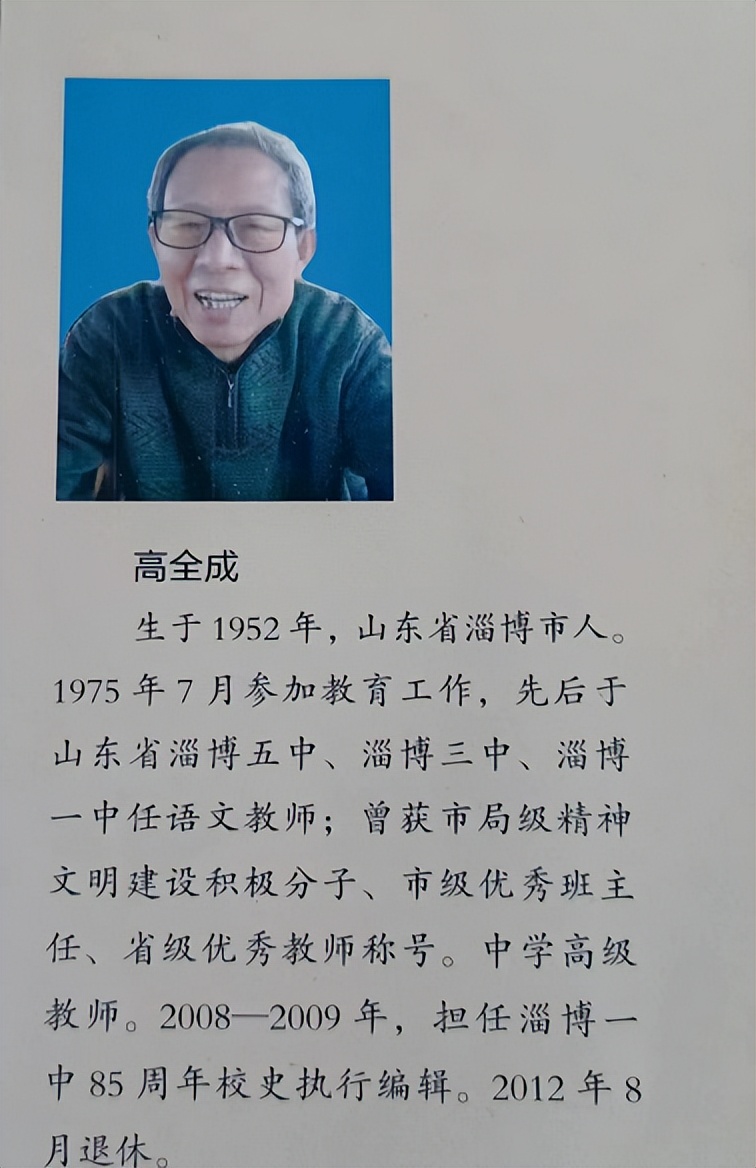 高全成
生于1952年，山东省淄博市人。
1975年7月参加教育工作，先后于
山东省淄博五中、淄博三中、淄博
一中任语文教师；曾获市局级精神
文明建设积极分子、市级优秀班主
任、省级优秀教师称号。中学高级
教师。2008—2009年，担任淄博一
中85周年校史执行编辑。2012年8
月退休。